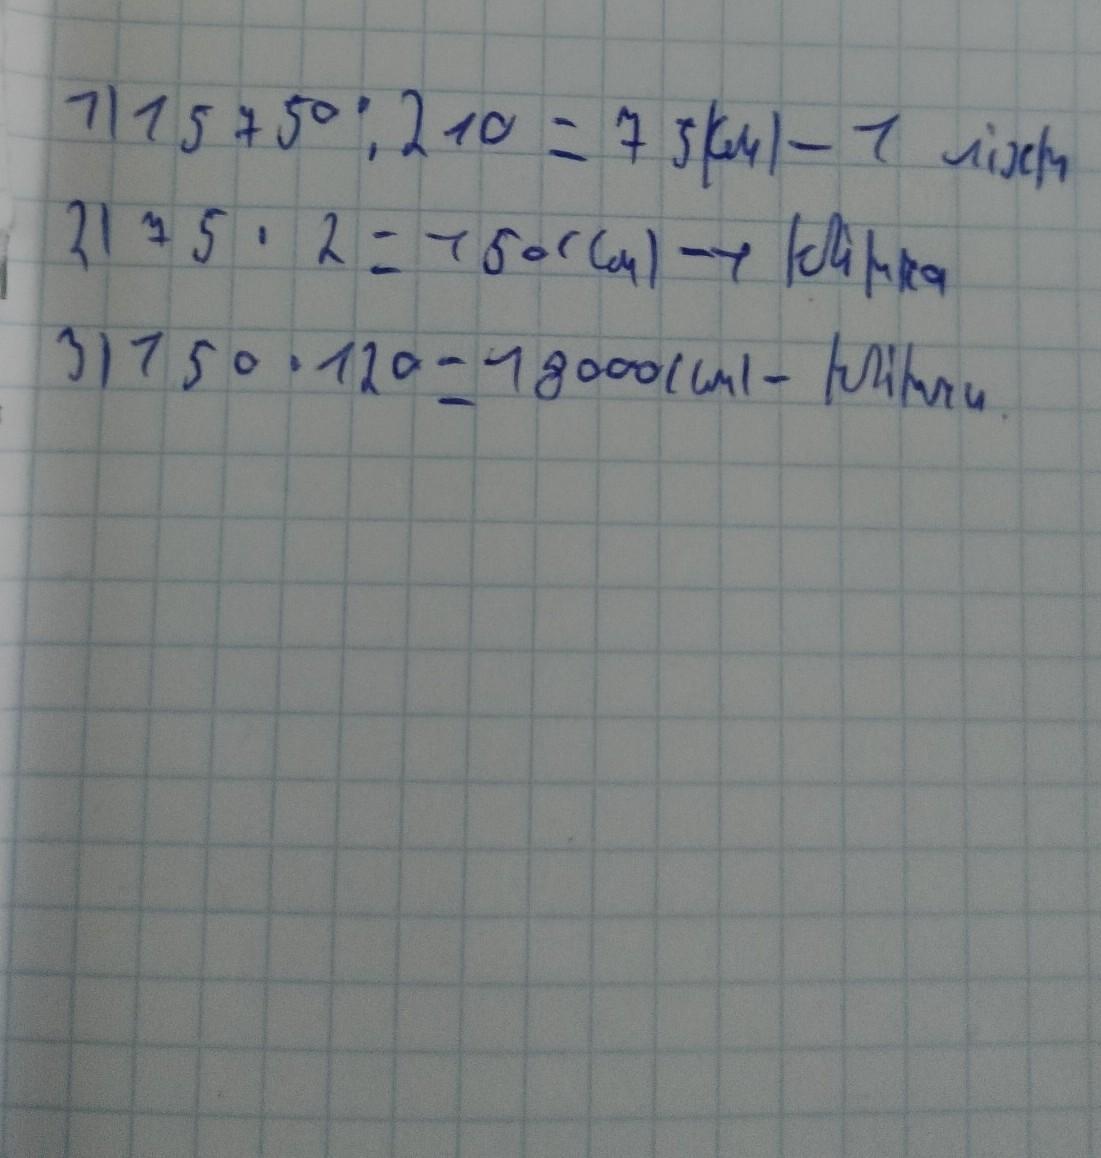 1) 15750 : 210 = 75(см) - 1 ліжк
2) 75 · 2 = 150 (см) - 1 клітка
3) 150 · 120 = 18000 (см) - клітки